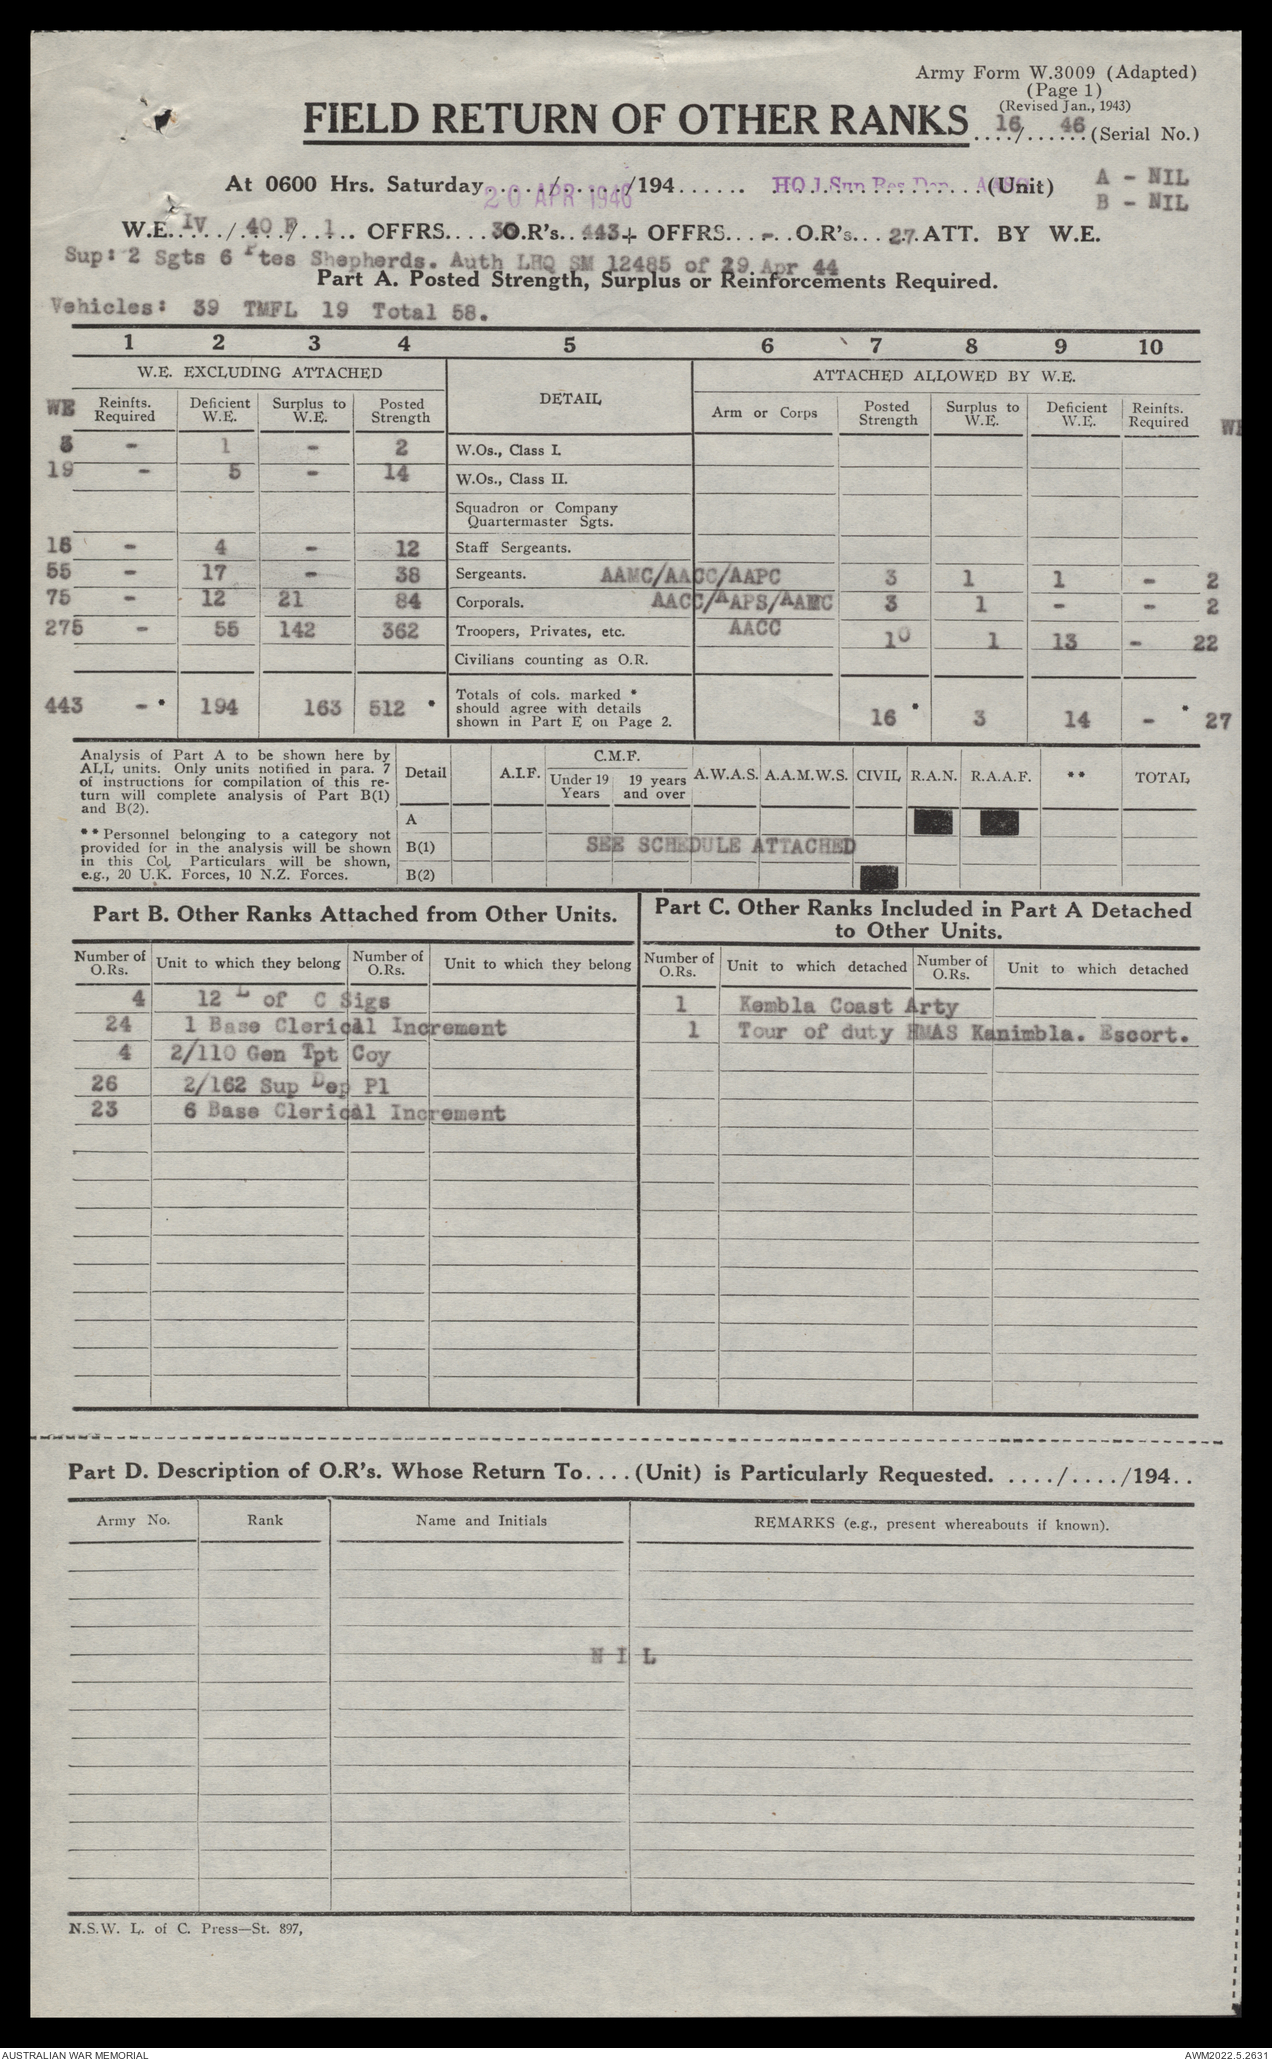 Army Form W.3009 (Adapted)
(Page 1)
(Revised Jan., 1943)
FIELD RETURN OF OTHER RANKS ....16/......46 (Serial No.)
At 0600 Hrs. Saturday....../....../194...... 20 APR 1946 HQ 1 Sup Res Dep (Unit)
A - NIL
B - NIL
W.E. IV / 40 F / 1 .. OFFRS.... 30 O.R's.. 443 + OFFRS... - .. O.R's... 27. ATT. BY W.E.
Sup: 2 Sgts 6 Ptes Shepherds. Auth LHQ SM 12485 of 29 Apr 44
Part A. Posted Strength, Surplus or Reinforcements Required.
Vehicles: 39 TMFL 19 Total 58.
1 2 3 4 5 6 7 8 9 10
W.E. EXCLUDING ATTACHED DETAIL ATTACHED ALLOWED BY W.E.
WE Reinfts. Required Deficient W.E. Surplus to W.E. Posted Strength Arm or Corps Posted Strength Surplus to W.E. Deficient W.E. Reinfts. Required WE
3 - 1 - 2 W.Os., Class I.
19 - 5 - 14 W.Os., Class II.
Squadron or Company
Quartermaster Sgts.
16 - 4 - 12 Staff Sergeants.
55 - 17 - 38 Sergeants. AAMC/AACC/AAPC 3 1 1 - 2
75 - 12 21 84 Corporals. AACC/AAPS/AAMC 3 1 - - 2
275 - 55 142 362 Troopers, Privates, etc. AACC 10 1 13 - 22
Civilians counting as O.R.
443 - * 194 163 512 * Totals of cols. marked * should agree with details shown in Part E on Page 2. 16 * 3 14 - * 27
Analysis of Part A to be shown here by
ALL units. Only units notified in para. 7
of instructions for compilation of this re-
turn will complete analysis of Part B(1)
and B(2).
** Personnel belonging to a category not
provided for in the analysis will be shown
in this Col. Particulars will be shown,
e.g., 20 U.K. Forces, 10 N.Z. Forces.
Detail A.I.F. C.M.F. Under 19 Years 19 years and over A.W.A.S. A.A.M.W.S. CIVIL R.A.N. R.A.A.F. ** TOTAL
A
B(1) SEE SCHEDULE ATTACHED
B(2)
Part B. Other Ranks Attached from Other Units.
Number of O.Rs. Unit to which they belong Number of O.Rs. Unit to which they belong
4 12 L of C Sigs
24 1 Base Clerical Increment
4 2/110 Gen Tpt Coy
26 2/162 Sup Dep Pl
23 6 Base Clerical Increment
Part C. Other Ranks Included in Part A Detached
to Other Units.
Number of O.Rs. Unit to which detached Number of O.Rs. Unit to which detached
1 Kembla Coast Arty
1 Tour of duty HMAS Kanimbla. Escort.
Part D. Description of O.R's. Whose Return To.... (Unit) is Particularly Requested. ..../..../194..
Army No. Rank Name and Initials REMARKS (e.g., present whereabouts if known).
N I L
N.S.W. L. of C. Press—St. 897,
AUSTRALIAN WAR MEMORIAL AWM2022.5.2631